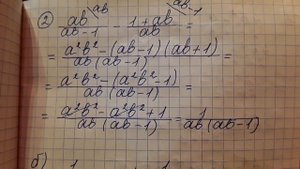 2) ab/(ab-1) \ab - (1+ab)/ab \ab-1 =
= (a²b² - (ab-1)(ab+1))/(ab(ab-1)) =
= (a²b² - (a²b²-1))/(ab(ab-1)) =
= (a²b² - a²b² + 1)/(ab(ab-1)) = 1/(ab(ab-1))